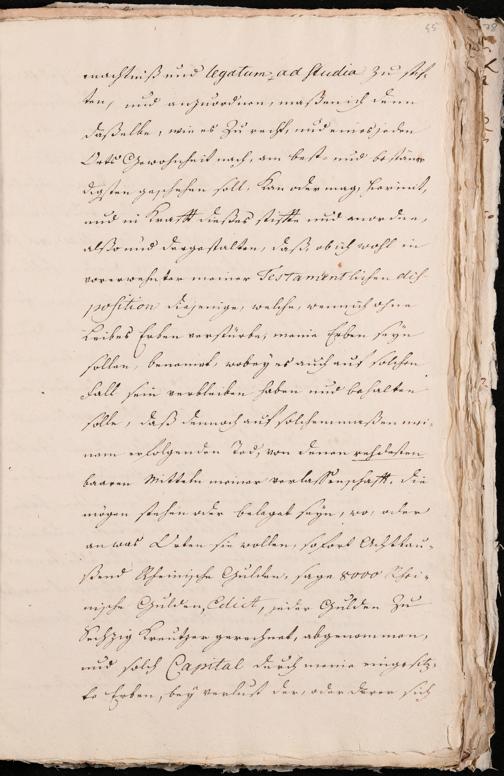 55
machtniß und legatum ad Studia zu stif
ten, und anzuordnen, maßen ich denn
dasselbe, wie es zu recht, und eines jeden
Orts Gewohnheit nach, am best- und bestän
digsten geschehen soll, kan oder mag, hiermit,
und in Krafft dieses stiffte und anordne,
also und dergestalten, daß, ob ich wohl in
vorerwehnter meiner Testamentlichen dis
position diejenige, welche, wenn ich ohne
Leibes Erben verstürbe, meine Erben seyn
sollen, benennet, wobey es auch auf solchen
Fall sein verbleiben haben und behalten
solle, daß dennoch auf solchem maßen mei-
nem erfolgenden Tod, von denen
baaren Mitteln meiner verlassenschafft, die
mögen stehen oder belegt seyn, wo, oder
an was Orten sie wollen, sofort Achttau-
ßend Rheinische Gulden, sage 8000 Rhei-
nische Gulden, Edict, jeder Gulden zu
Sechzig Kreutzer gerechnet, abgenommen,
und solch Capital durch meine eingesetz-
te Erben, bey verlust der, oder derer sich